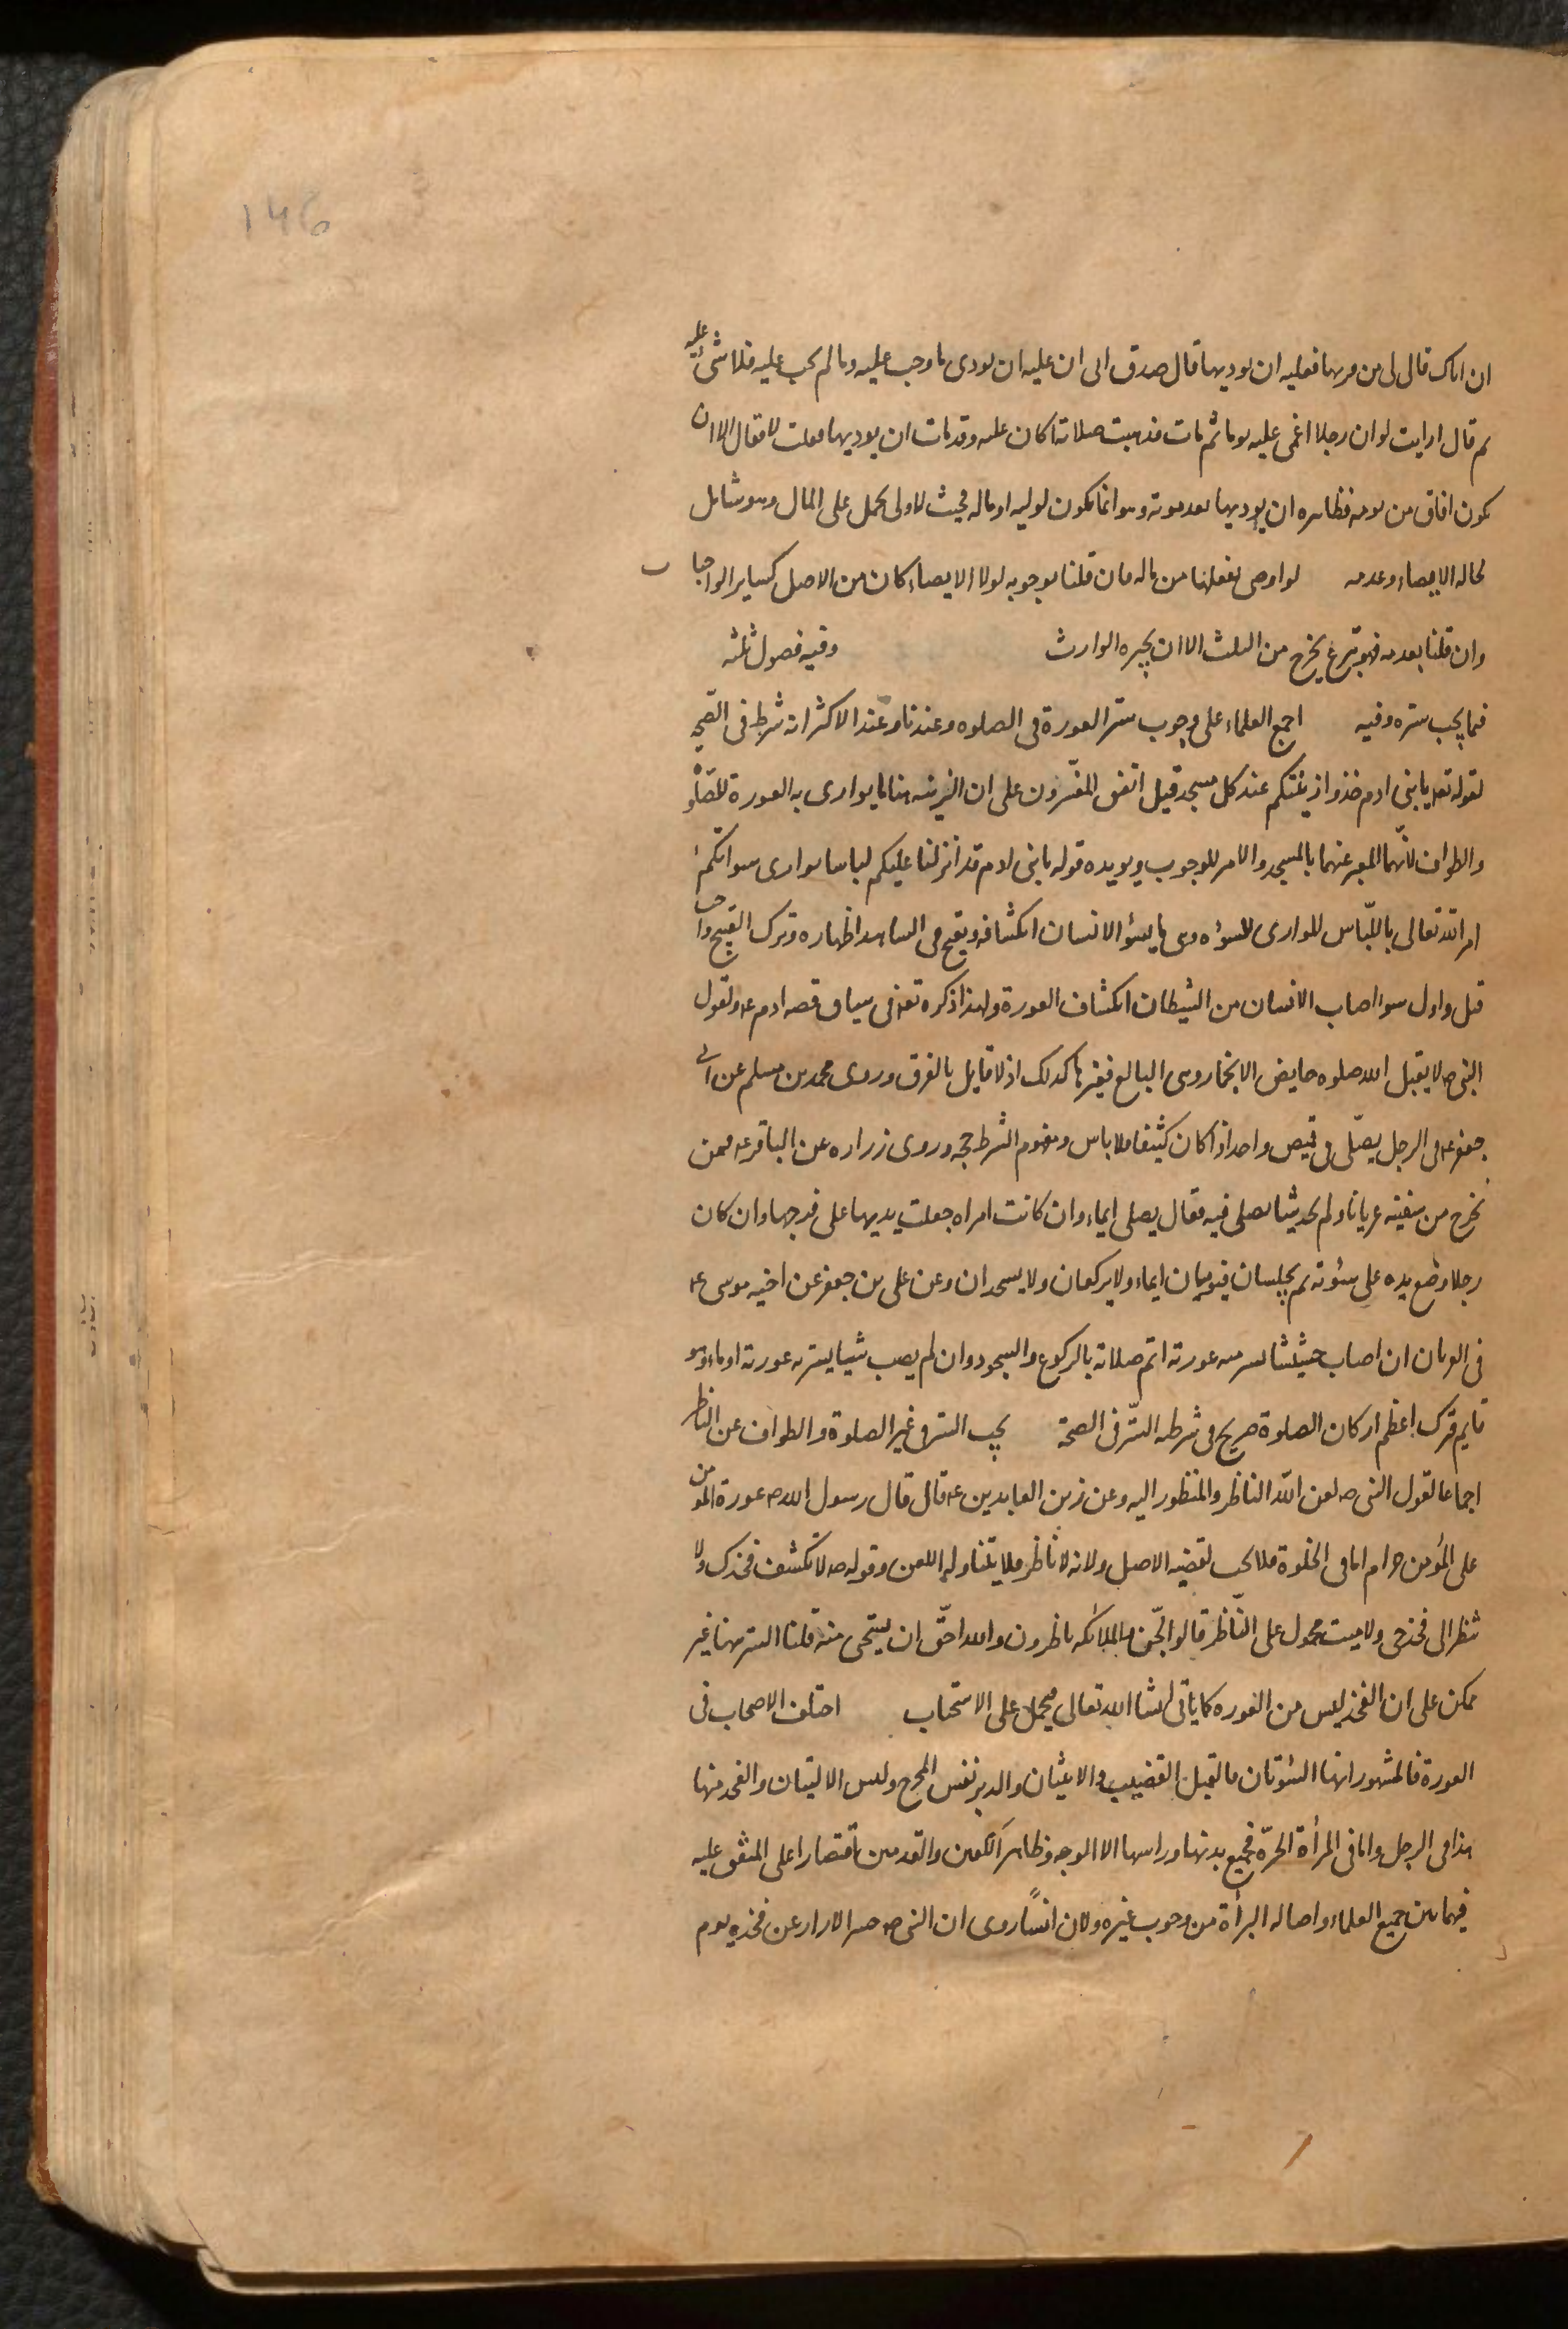 ۱۴۶
ان اباك قال لى من فر بها فعليه ان يوديها قال صدق ابى ان عليه ان يودى ما وجب عليه وما لم يجب عليه فلا شئ عليه
ثم قال ارايت لو ان رجلا اغمى عليه يوما ثم مات فذهبت صلاته اكان عليه وقد مات ان يوديها فقلت لا فقال الا ان
يكون افاق من يومه فظاهره ان يوديها بعد موته وهو انما يكون لوليه او ماله فحيث لا ولى يحمل على المال وهو شامل
لحاله الايصاء وعدمه لو اوصى بفعلها من ماله فان قلنا بوجوبه لولا الايصاء كان من الاصل كساير الواجبات
وان قلنا بعدمه فهو تبرع يخرج من الثلث الا ان يجيزه الوارث وفيه فصول ثلثه
فيما يجب ستره وفيه اجمع العلماء على وجوب ستر العورة فى الصلوه وعندنا وعند الاكثر انه شرط فى الصحه
لقوله تعه يا بنى ادم خذوا زينتكم عند كل مسجد قيل اتفق المفسّرون على ان الزينه هنا ما يوارى به العورة للصّلوة
والطواف لانّهما المعبر عنهما بالمسجد والامر للوجوب ويويده قوله يا بنى ادم قد انزلنا عليكم لباسا يوارى سواتكم
امر الله تعالى باللّباس الموارى للسؤه وهى ما يسؤ الانسان انكشافه ويقبح فى الشاهد اظهاره وترك القبيح واجب
قيل واول سوء اصاب الانسان من الشيطان انكشاف العورة ولهذا ذكره تعه فى سياق قصه ادم عه ولقول
النبى صه لا يقبل الله صلوه حايض الا بخمار وهى البالغ فغيرها كذلك اذ لا قايل بالفرق وروى محمد بن مسلم عن ابى
جعفر عه فى الرجل يصلّى فى قميص واحد اذا كان كثيفا فلا باس ومفهوم الشرط حجه وروى زراره عن الباقر عه فيمن
يخرج من سفينه عريانا ولم يجد شيئا يصلى فيه فقال يصلى ايماء وان كانت امراه جعلت يديها على فرجها وان كان
رجلا وضع يده على سؤته ثم يجلسان فيوميان ايماء ولا يركعان ولا يسجدان وعن على بن جعفر عن اخيه موسى عه
فى العريان ان اصاب حشيشا يستر منه عورته اتم صلاته بالركوع والسجود وان لم يصب شيئا يستر به عورته اوماء وهو
قايم فترك اعظم اركان الصلوة صريح فى شرطيه السّتر فى الصحة يجب الستر فى غير الصلوة والطواف عن الناظر
اجماعا لقول النبى صه لعن الله الناظر والمنظور اليه وعن زين العابدين عه قال قال رسول الله صه عورة المومن
على المؤمن حرام اما فى الخلوة فلا يجب لقضيه الاصل ولانه لا ناظر فلا يتناوله اللعن وقوله صه لا تكشف فخذك ولا
تنظر الى فخذ حى ولا ميت محمول على النّاظر قالوا الجّن والملائكه ناظرون والله احقّ ان يستحى منه قلنا الستر منها غير
ممكن على ان الفخذ ليس من العوره كما ياتى انشا الله تعالى فيحمل على الاستحباب اختلف الاصحاب فى
العورة فالمشهور انها السؤتان فالقبل القضيب والانثيان والدبر نفس المخرج وليس الاليتان والفخذ منها
هذا فى الرجل واما فى المرأة الحرّه فجميع بدنها وراسها الا الوجه وظاهر الكفين والقدمين اقتصارا على المتفق عليه
فيما بين جميع العلماء واصاله البرأة من وجوب غيره ولان انسًا روى ان النبى صه حسر الازار عن فخذه يوم